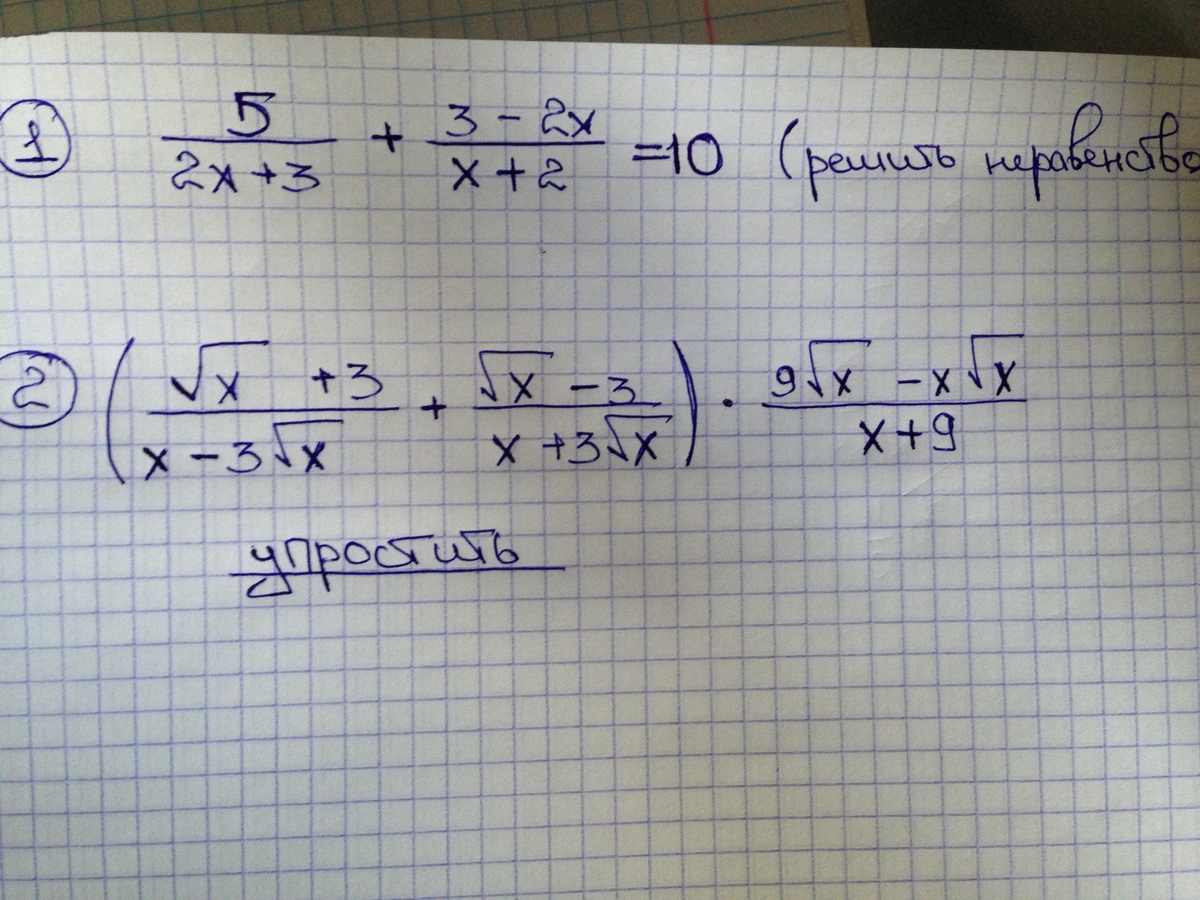 1 5/(2x+3) + (3-2x)/(x+2) =10 (решить неравенство
2 ((√x +3)/(x-3√x) + (√x -3)/(x+3√x)) · (9√x -x√x)/(x+9)
упростить